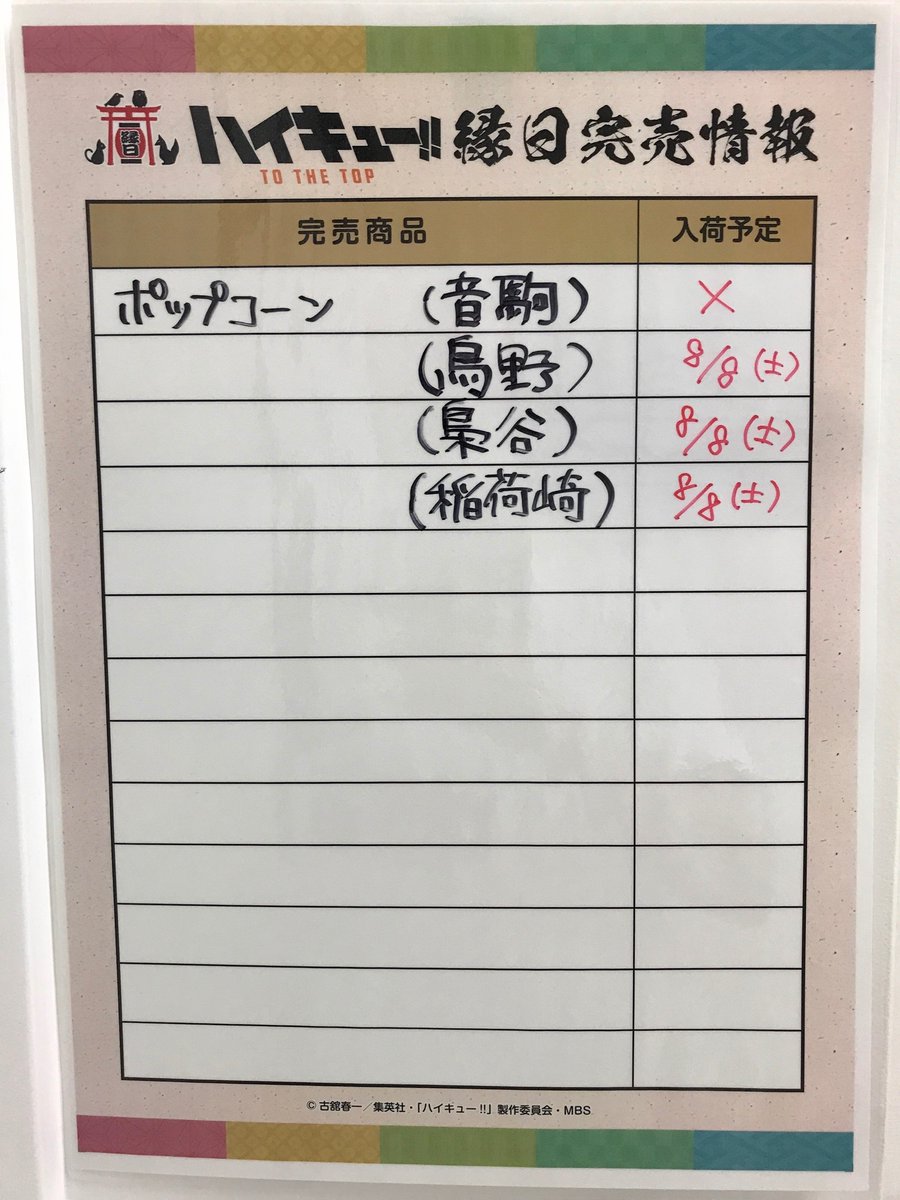 縁日
ハイキュー!!縁日完売情報
TO THE TOP
完売商品 入荷予定
ポップコーン (音駒) ×
(烏野) 8/8(土)
(梟谷) 8/8(土)
(稲荷崎) 8/8(土)
© 古舘春一／集英社・「ハイキュー!!」製作委員会・MBS